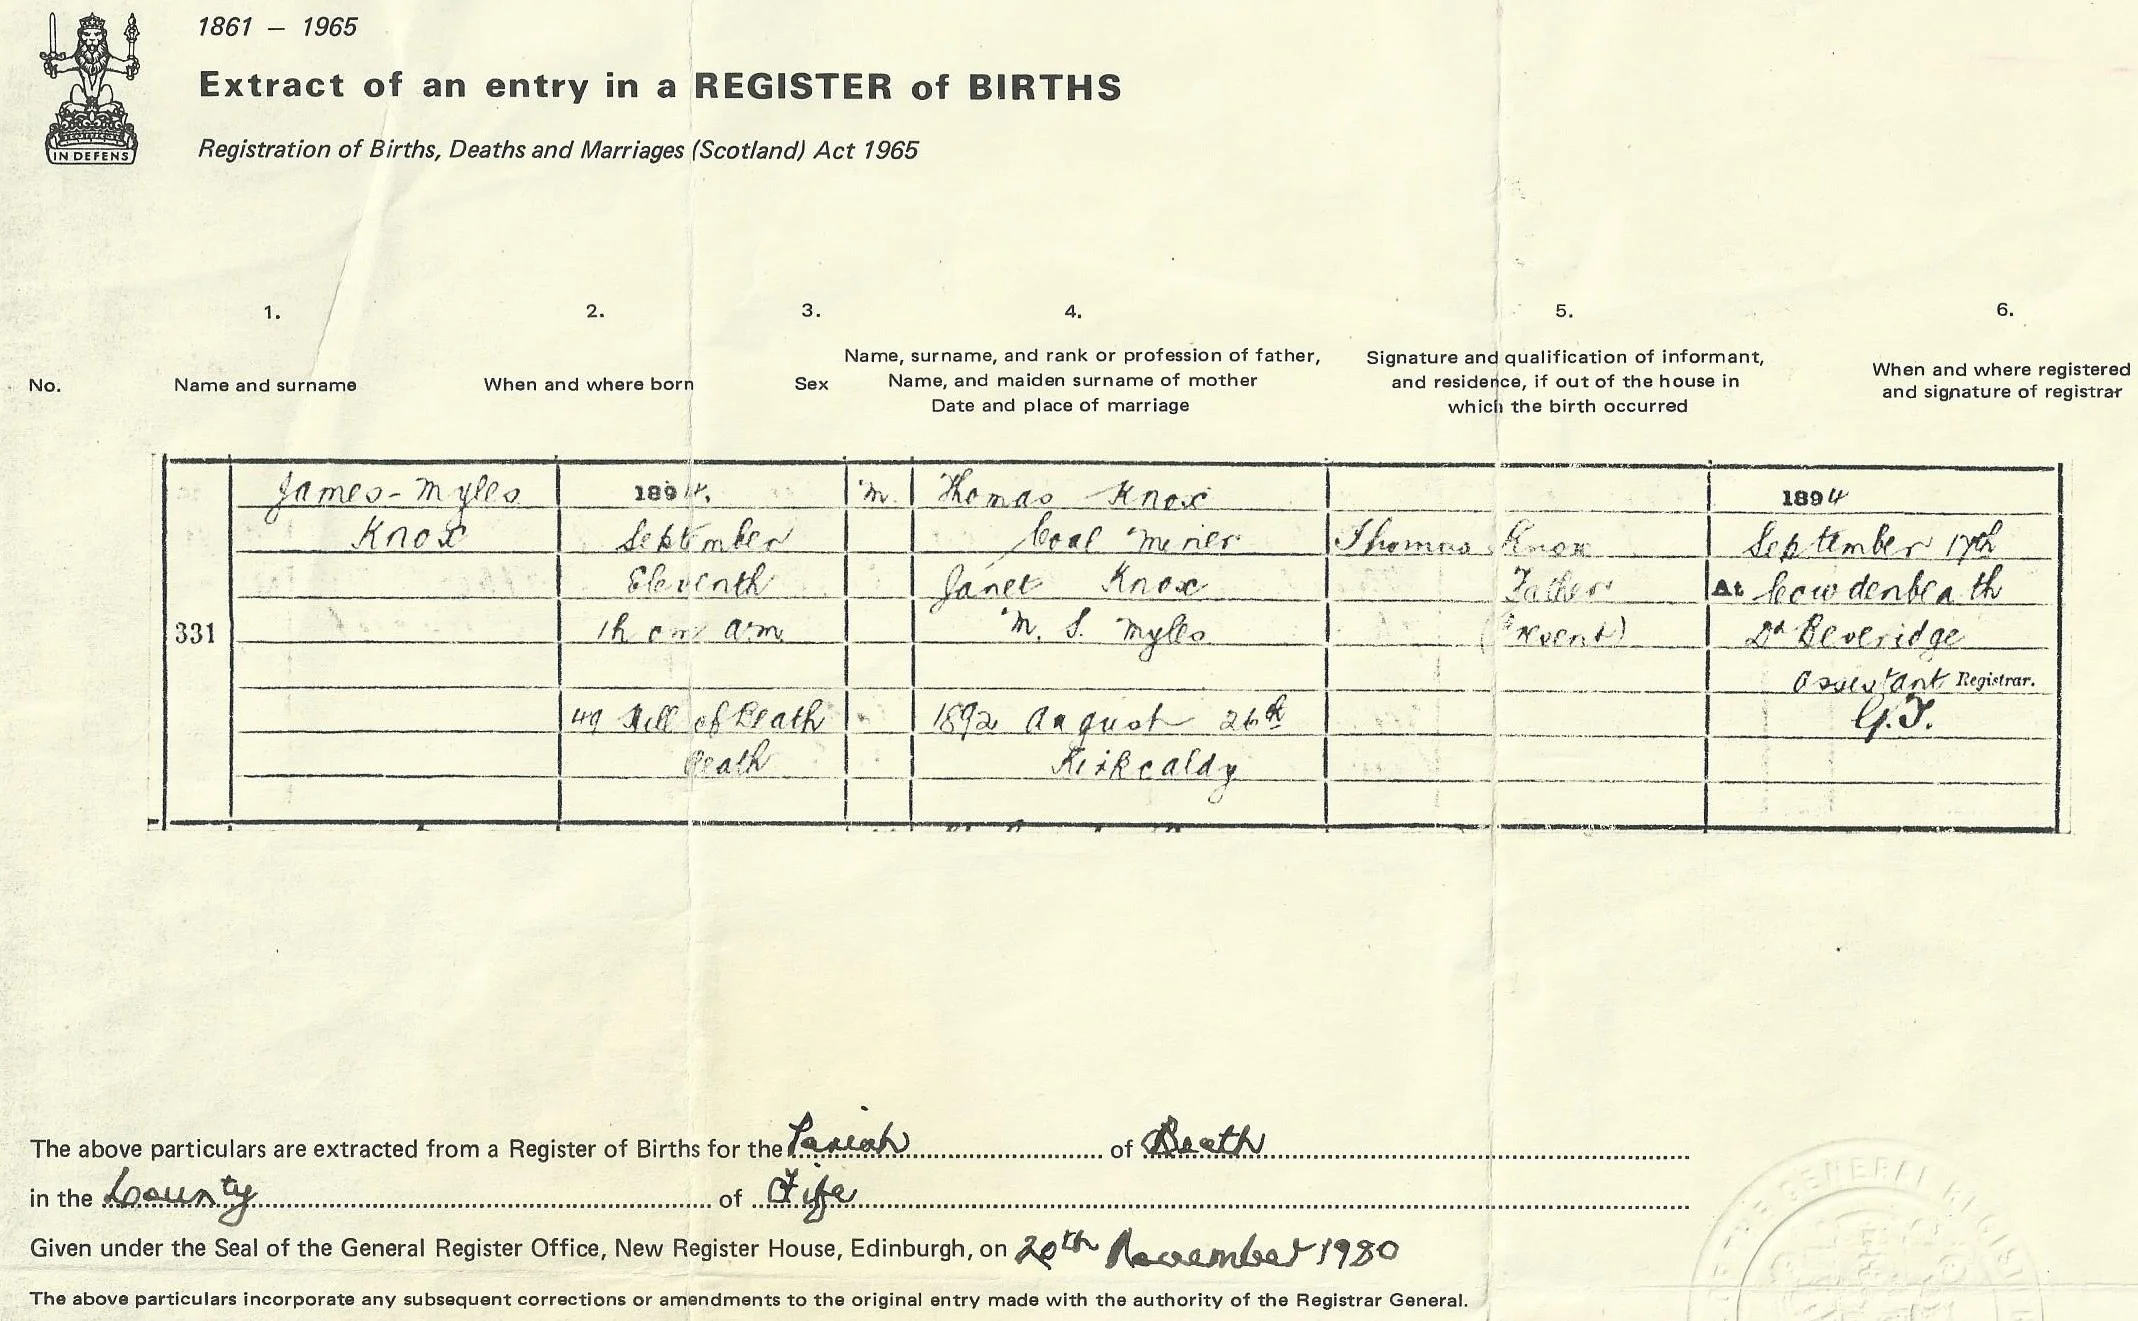 1861 – 1965
Extract of an entry in a REGISTER of BIRTHS
IN DEFENS
Registration of Births, Deaths and Marriages (Scotland) Act 1965
1. 2. 3. 4. 5. 6.
No.
Name and surname
When and where born
Sex
Name, surname, and rank or profession of father,
Name, and maiden surname of mother
Date and place of marriage
Signature and qualification of informant,
and residence, if out of the house in
which the birth occurred
When and where registered
and signature of registrar
331
James-Myles
Knox
1894.
September
Eleventh
1h 0m a.m.
49 Hill of Beath
Beath
M.
Thomas Knox
Coal Miner
Janet Knox
M. S. Myles
1892 August 26th
Kirkcaldy
Thomas Knox
Father
(Present)
1894
September 17th
At Cowdenbeath
Dd Beveridge
Assistant Registrar.
G.T.
The above particulars are extracted from a Register of Births for the Parish of Beath
in the County of Fife
Given under the Seal of the General Register Office, New Register House, Edinburgh, on 20th November 1980
The above particulars incorporate any subsequent corrections or amendments to the original entry made with the authority of the Registrar General.